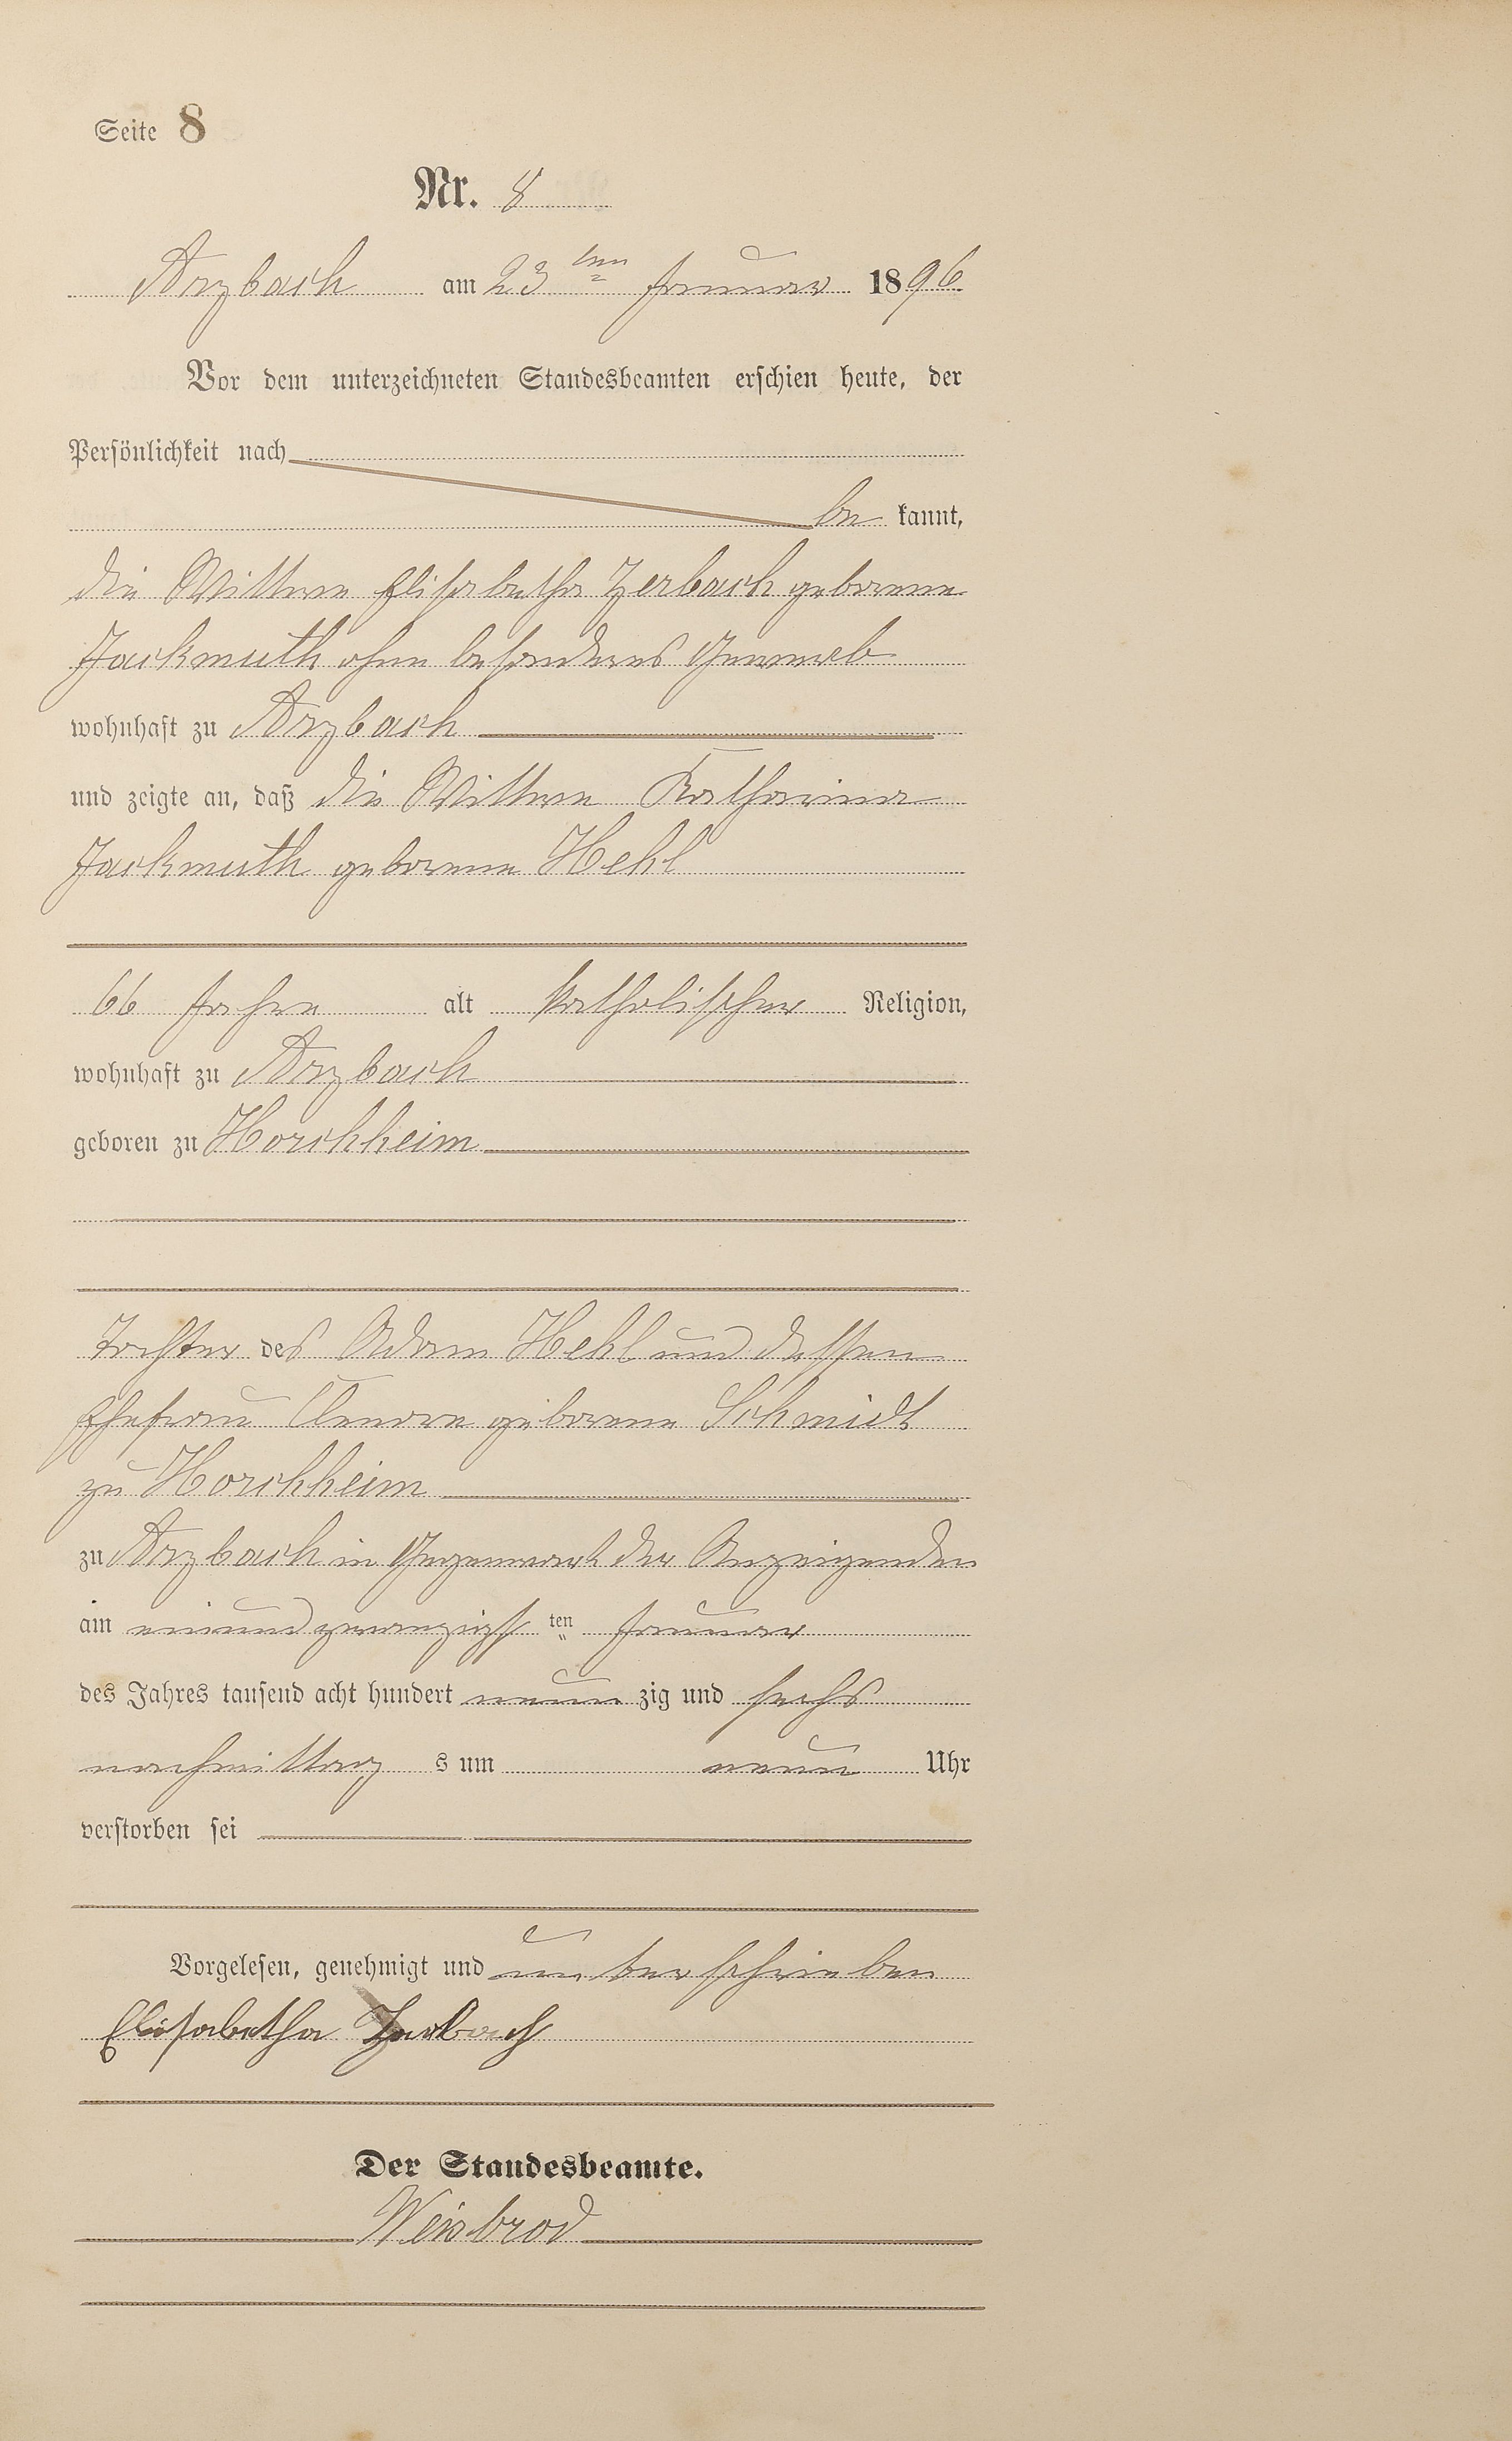 Seite 8
Nr. 8
Arzbach am 23 ten Januar 1896
Vor dem unterzeichneten Standesbeamten erschien heute, der
Persönlichkeit nach
be kannt,
die Wittwe Elisabetha Zerbach geborene
Jackmuth ohne besonderes Gewerb
wohnhaft zu Arzbach
und zeigte an, daß die Wittwe Katharina
Jackmuth geborene Hehl
66 Jahre alt katholischer Religion,
wohnhaft zu Arzbach
geboren zu Horchheim
Tochter des Adam Hehl und dessen
Ehefrau geborene Schmidt
zu Horchheim
zu Arzbach in Gegenwart der Anzeigenden
am einundzwanzigs ten Januar
des Jahres tausend acht hundert neun zig und sechs
nachmittag s um neun Uhr
verstorben sei
Vorgelesen, genehmigt und unterschrieben
Elisabetha Zerbach
Der Standesbeamte.
Weisbrod